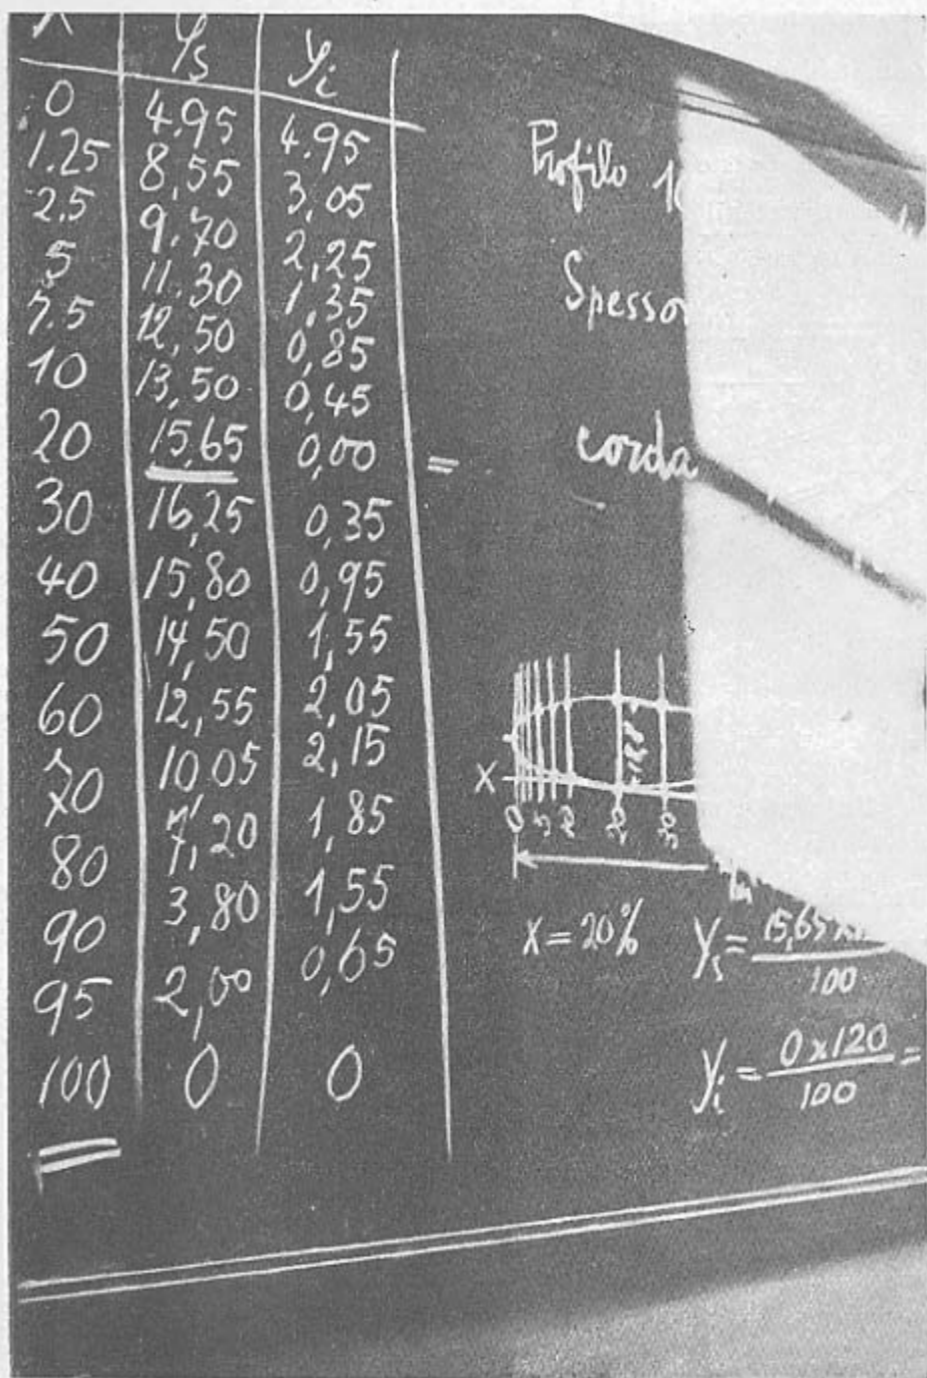 X ys yi
0 4.95 4.95
1.25 8,55 3,05
2.5 9.70 2,25
5 11.30 1,35
7.5 12,50 0,85
10 13,50 0,45
20 15,65 0,00 =
30 16,25 0,35
40 15,80 0,95
50 14,50 1,55
60 12,55 2,05
70 10,05 2,15
80 7,20 1,85
90 3,80 1,55
95 2,00 0,65
100 0 0
Profilo
Spesso
corda
X
0 5 20 30
X = 20% Ys = 15,65 x
100
Yi = 0 x 120 =
100